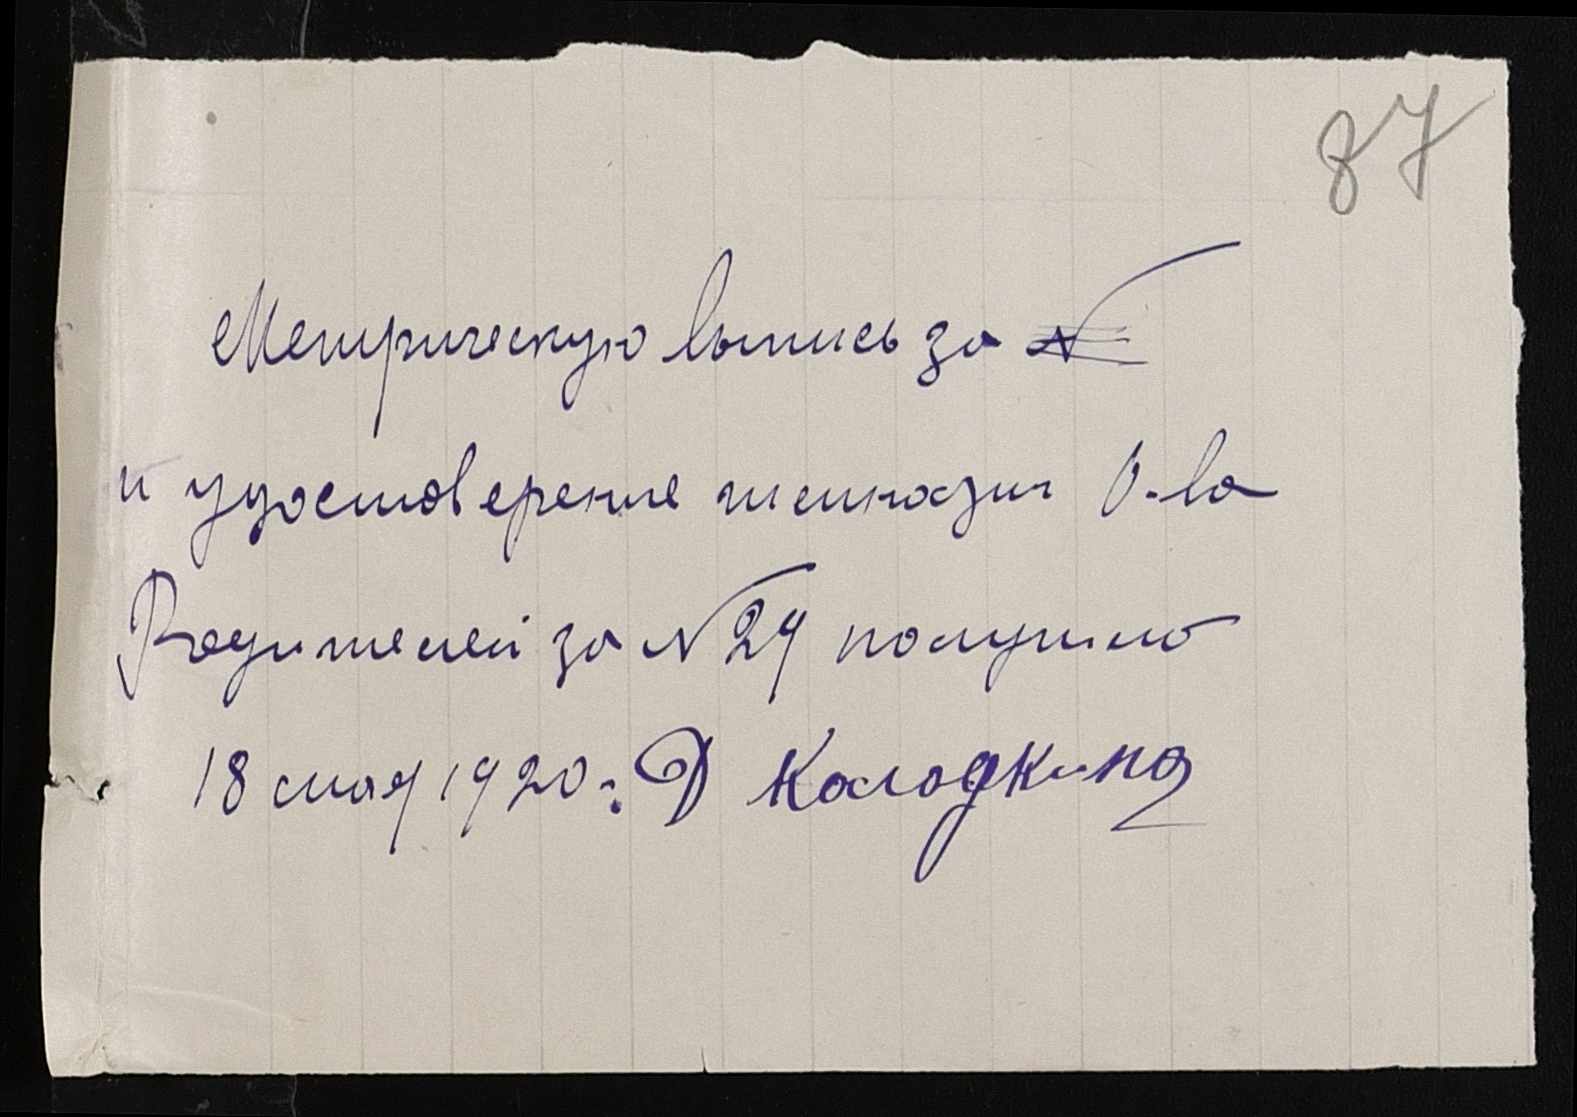 87
Метрическую выпись за №
и удостоверение гимназии О-ва
Родителей за № 29 получила
18 мая 1920 г. Колодкина